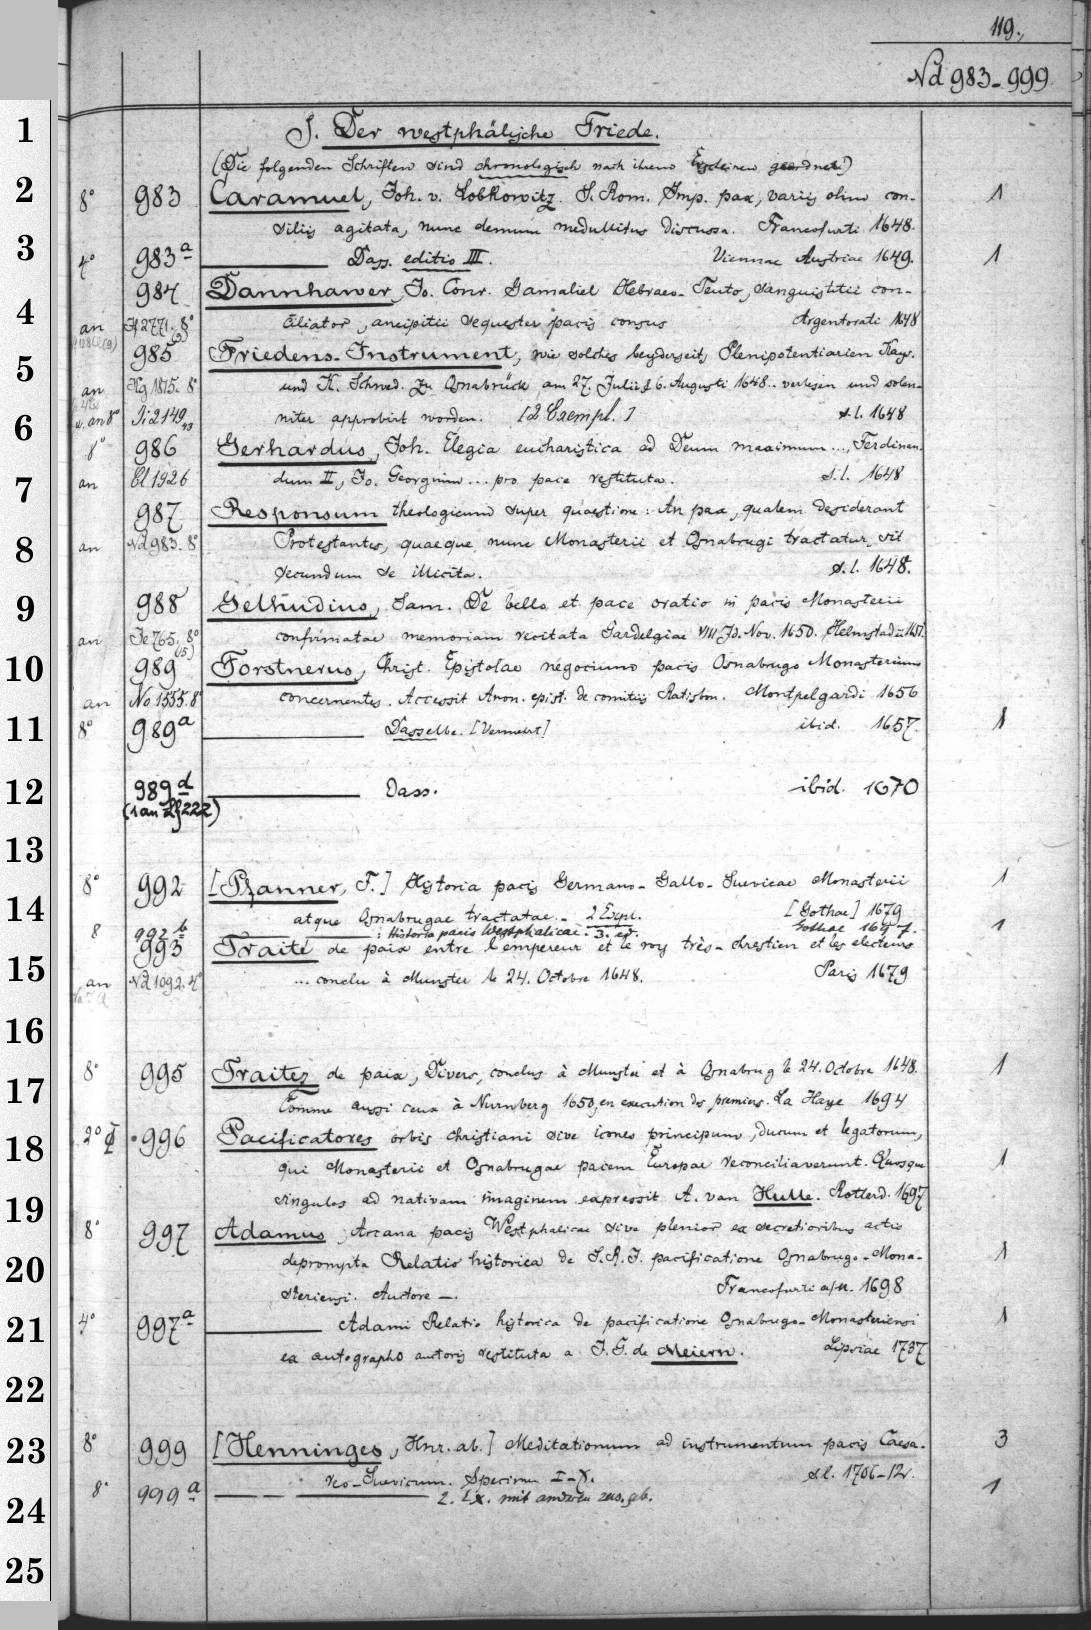 119.
Nd 983-999
1
J. Der westphälische Friede.
(Die folgenden Schriften sind chronologisch nach ihrem Erscheinen geordnet)
2 8° 983 Caramuel, Joh. v. Lobkowitz. S. Rom. Imp. pax, variis olim con- 1
siliis agitata, nunc demum medullitus discussa. Francofurti 1648.
3 4° 983a Dass. editio III. Viennae Austriae 1649. 1
984 Dannhawer, Jo. Conr. Gamaliel Hebraeo-Teuto, sanguistitii con-
4 an 2771. 8° ciliator, ancipitii sequester pacis consus Argentorati 1648
985 Friedens-Instrument, wie solches beyderseits Plenipotentiarien Kays.
5 an Hg 1815. 8° und K. Schwed. zu Osnabrück am 27. Julii / 6. Augusti 1648.. verlesen und solen-
6 u. an 8° Ji 2149 niter approbirt worden. [2 Exempl.] s.l. 1648
8° 986 Gerhardus, Joh. Elegia eucharistica ad Deum maximum..., Ferdinan-
7 an Bl 1926 dum II, Jo. Georgium... pro pace restituta. s.l. 1648
987 Responsum theologicum super quaestione: An pax, qualem desiderant
8 an Nd 983. 8° Protestantes, quaeque nunc Monasterii et Osnabrugi tractatur, sit
secundum se illicita. s.l. 1648.
9 988 Gelhudius, Sam. De bello et pace oratio in pacis Monasterii
an Je 765. 8° (5) confirmatae memoriam recitata Gardelgiae VIII Jd. Nov. 1650. Helmstad.
10 989 Forstnerus, Christ. Epistolae negocium pacis Osnabrugo Monasterium
an No 1555. 8° concernentes. Accessit Anon. epist. de comitiis Ratisbon. Montpelgardi 1656
11 8° 989a Dasselbe. [Vermehrt] ibid. 1657. 1
12 989d Dass. ibid. 1670
(1 an 222)
13
8° 992 [Pfanner, T.] Historia pacis Germano-Gallo-Suevicae Monasterii 1
14 atque Osnabrugae tractatae.- 2 Expl. [Gothae] 1679
8 992b : Historia pacis Westphalicae. 3. ed. Gothae 1697. 1
993 Traité de paix entre l'empereur et le roy très-chrestien et les electeurs
15 an Nd 1092. 4° ... conclu à Munster le 24. Octobre 1648. Paris 1679
16
8° 995 Traitez de paix, Divers, conclus à Munster et à Osnabrug le 24. Octobre 1648. 1
17 Comme aussi ceux à Nurnberg 1650, en execution des premiers. La Haye 1694
18 2° 996 Pacificatores orbis christiani sive icones principum, ducum et legatorum,
qui Monasterii et Osnabrugae pacem Europae reconciliaverunt. Quosque 1
19 singulos ad nativam imaginem expressit A. van Hulle. Rotterd. 1697
8° 997 Adamus, Arcana pacis Westphalicae sive plenior ex secretioribus actis
20 deprompta Relatio historica de S.R.J. pacificatione Osnabrugo-Mona- 1
steriensi. Auctore —. Francofurti a/M. 1698
21 4° 997a Adami Relatio historica de pacificatione Osnabrugo-Monasteriensi 1
ex autographo auctoris restituta a J.G. de Meiern. Lipsiae 1737
22
23 8° 999 [Henninges, Hnr. ab.] Meditationum ad instrumentum pacis Caesa- 3
reo-Suevicum. Specimen I-X. s.l. 1706-12.
24 8° 999a 2. Ex. mit anderen zus. geb. 1
25